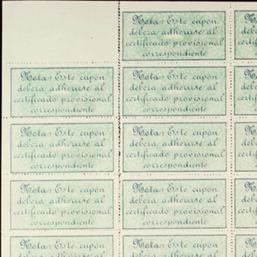 Nota: Este cupon
deberá adherirse al
certificado provisional
correspondiente
Nota: Este cupon
deberá adherirse al
certificado provisional
correspondiente
Nota: Este cupon
deberá adherirse al
certificado provisional
correspondiente
Nota: Este cupon
deberá adherirse al
certificado provisional
correspondiente
Nota: Este cupon
deberá adherirse al
certificado provisional
correspondiente
Nota: Este cupon
deberá adherirse al
certificado provisional
correspondiente
Nota: Este cupon
deberá adherirse al
certificado provisional
correspondiente
Nota: Este cupon
deberá adherirse al
Nota: Este cupon
deberá adherirse al